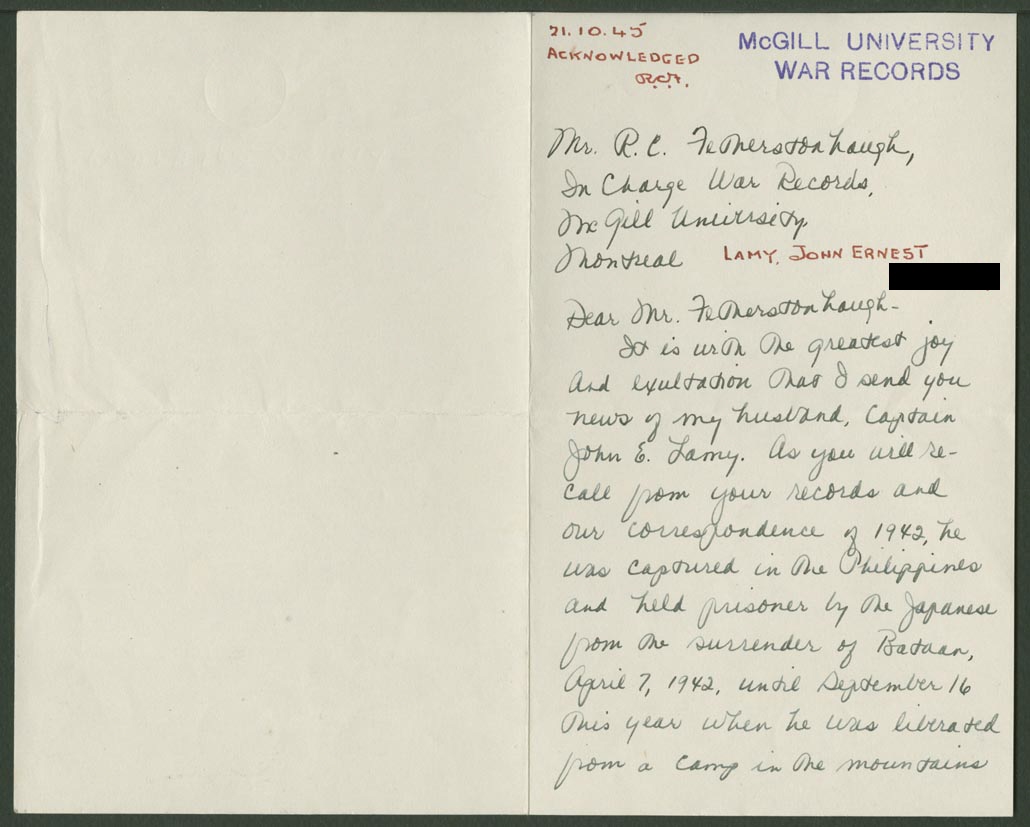 21.10.45
ACKNOWLEDGED
R.C.F.
McGILL UNIVERSITY
WAR RECORDS
Mr. R. C. Fetherstonhaugh,
In Charge War Records,
McGill University
Montreal
LAMY, JOHN ERNEST
Dear Mr. Fetherstonhaugh-
It is with the greatest joy
and exultation that I send you
news of my husband, Captain
John E. Lamy. As you will re-
call from your records and
our correspondence of 1942, he
was captured in the Philippines
and held prisoner by the Japanese
from the surrender of Bataan,
April 7, 1942, until September 16
this year when he was liberated
from a camp in the mountains